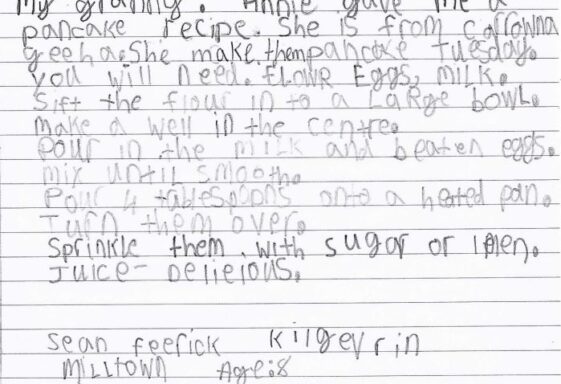 My granny. Annie gave me a
pancake recipe. She is from carrowna
geeha. She make them pancake Tuesday.
you will need. FLOWR Eggs, MiLK.
Sift the flour in to a LaRge bowl.
make a well in the centre.
Pour in the milk and beaten eggs.
mix until smooth.
Pour 4 tablespoons onto a heated pan.
Turn them over.
Sprinkle them. with sugar or
Juice- Delieious.
Sean feerick Kilgevrin
Milltown Age:8